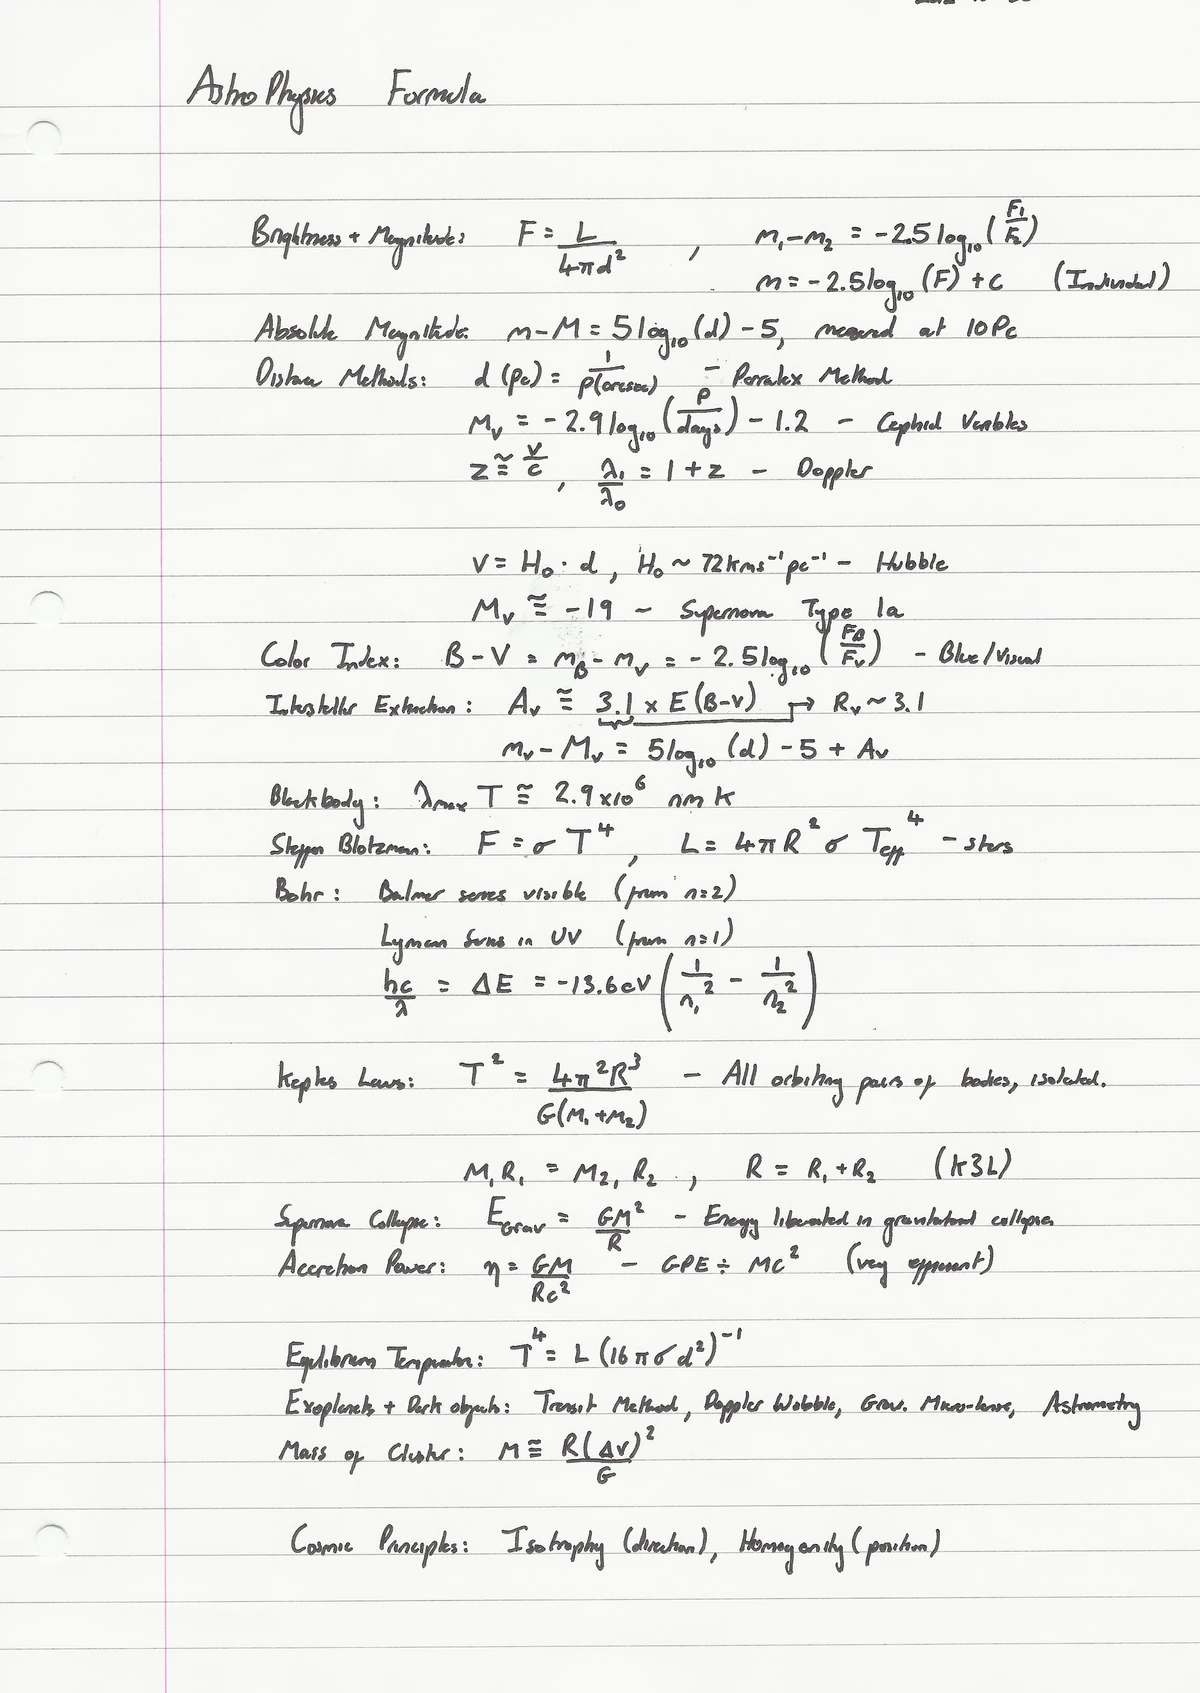 AstroPhysics Formula
Brightness + Magnitude: F = L / 4πd² , m₁-m₂ = -2.5 log₁₀ (F₁/F₂)
m = -2.5 log₁₀ (F) + C (Individual)
Absolute Magnitude: m-M = 5 log₁₀ (d) - 5, measured at 10Pc
Distance Methods: d (pc) = 1 / p(arcsec) - Parralex Method
Mᵥ = -2.9 log₁₀ (P/days) - 1.2 - Cephid Varibles
z ≅ v/c , λ₁/λ₀ = 1 + z - Doppler
V = H₀ · d , H₀ ~ 72 kms⁻¹ pc⁻¹ - Hubble
Mᵥ ≅ -19 - Supernova Type 1a
Color Index: B-V = m_B - m_V = -2.5 log₁₀ (F_B/F_V) - Blue/Visual
Interstellar Extinction: Aᵥ ≅ 3.1 × E(B-V) → Rᵥ ~ 3.1
mᵥ - Mᵥ = 5 log₁₀ (d) - 5 + Aᵥ
Blackbody: λmax T ≅ 2.9×10⁶ nm K
Steffan Blotzman: F = σ T⁴ , L = 4πR² σ Teff⁴ - stars
Bohr: Balmer series visible (from n=2)
Lyman Series in UV (from n=1)
hc/λ = ΔE = -13.6eV (1/n₁² - 1/n₂²)
Keples Laws: T² = 4π²R³ / G(M₁+M₂) - All orbiting pairs of bodies, isolated.
M₁R₁ = M₂, R₂ , R = R₁+R₂ (K3L)
Supernova Collapse: E_Grav = GM²/R - Energy liberated in gravitational collapse
Accretion Power: η = GM / Rc² - GPE ÷ MC² (very efficient)
Equilibrium Temperature: T⁴ = L (16πσd²)⁻¹
Exoplanets + Dark objects: Transit Method, Doppler Wobble, Grav. Micro-lense, Astrometry
Mass of Cluster: M ≅ R(Δv)² / G
Cosmic Principles: Isotrophy (direction), Homogenity (position)